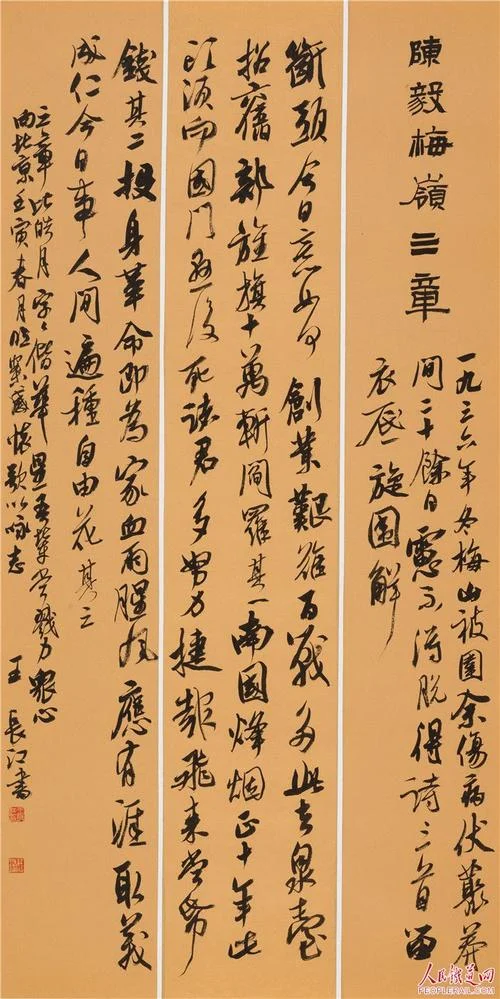 陳毅梅嶺三章
一九三六年冬梅山被圍余傷病伏叢莽
間二十餘日慮不得脫得詩三首留
衣底旋圍解
斷頭今日意如何創業艱難百戰多此去泉臺
招舊部旌旗十萬斬閻羅其一南國烽烟正十年此
頭須向國門懸後死諸君多努力捷報飛來當紙
錢其二投身革命即為家血雨腥風應有涯取義
成仁今日事人間遍種自由花其三
三章比皓月字〻偕華星吾輩當戮力眾心
向北京壬寅春月懷歌以詠志
王長江書
人民鐵道网
PEOPLERAIL.COM